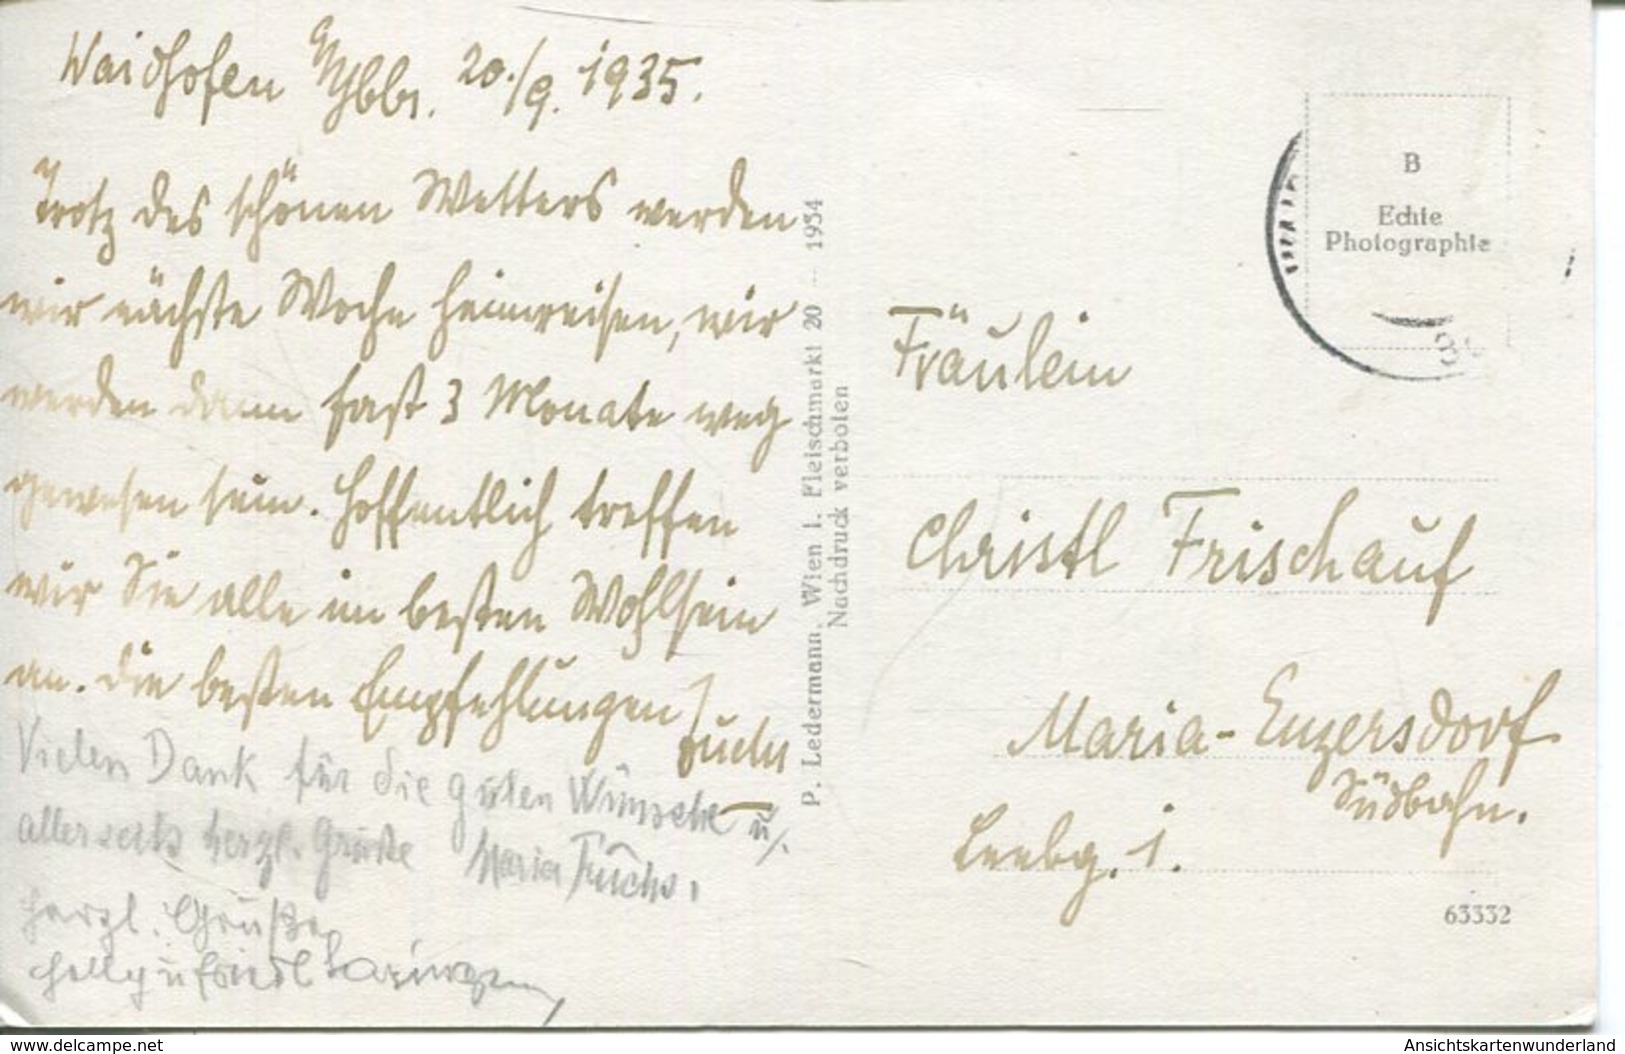 Waidhofen a/Ybbs. 20./9. 1935.
Trotz des schönen Wetters werden
wir nächste Woche heimreisen, wir
werden dann fast 3 Monate weg
gewesen sein. Hoffentlich treffen
wir Sie alle im besten Wohlsein
an. Die besten Empfehlungen
Fuchs
Vielen Dank für die guten Wünsche u.
allerseits herzl. Grüße Maria Fuchs.
Herzl. Grüße
Helly u Friedl
P. Ledermann, Wien I. Fleischmarkt 20 — 1934
Nachdruck verboten
B
Echte
Photographie
Fräulein
Christl Frischauf
Maria-Enzersdorf
Südbahn.
63332
www.delcampe.net
Ansichtskartenwunderland